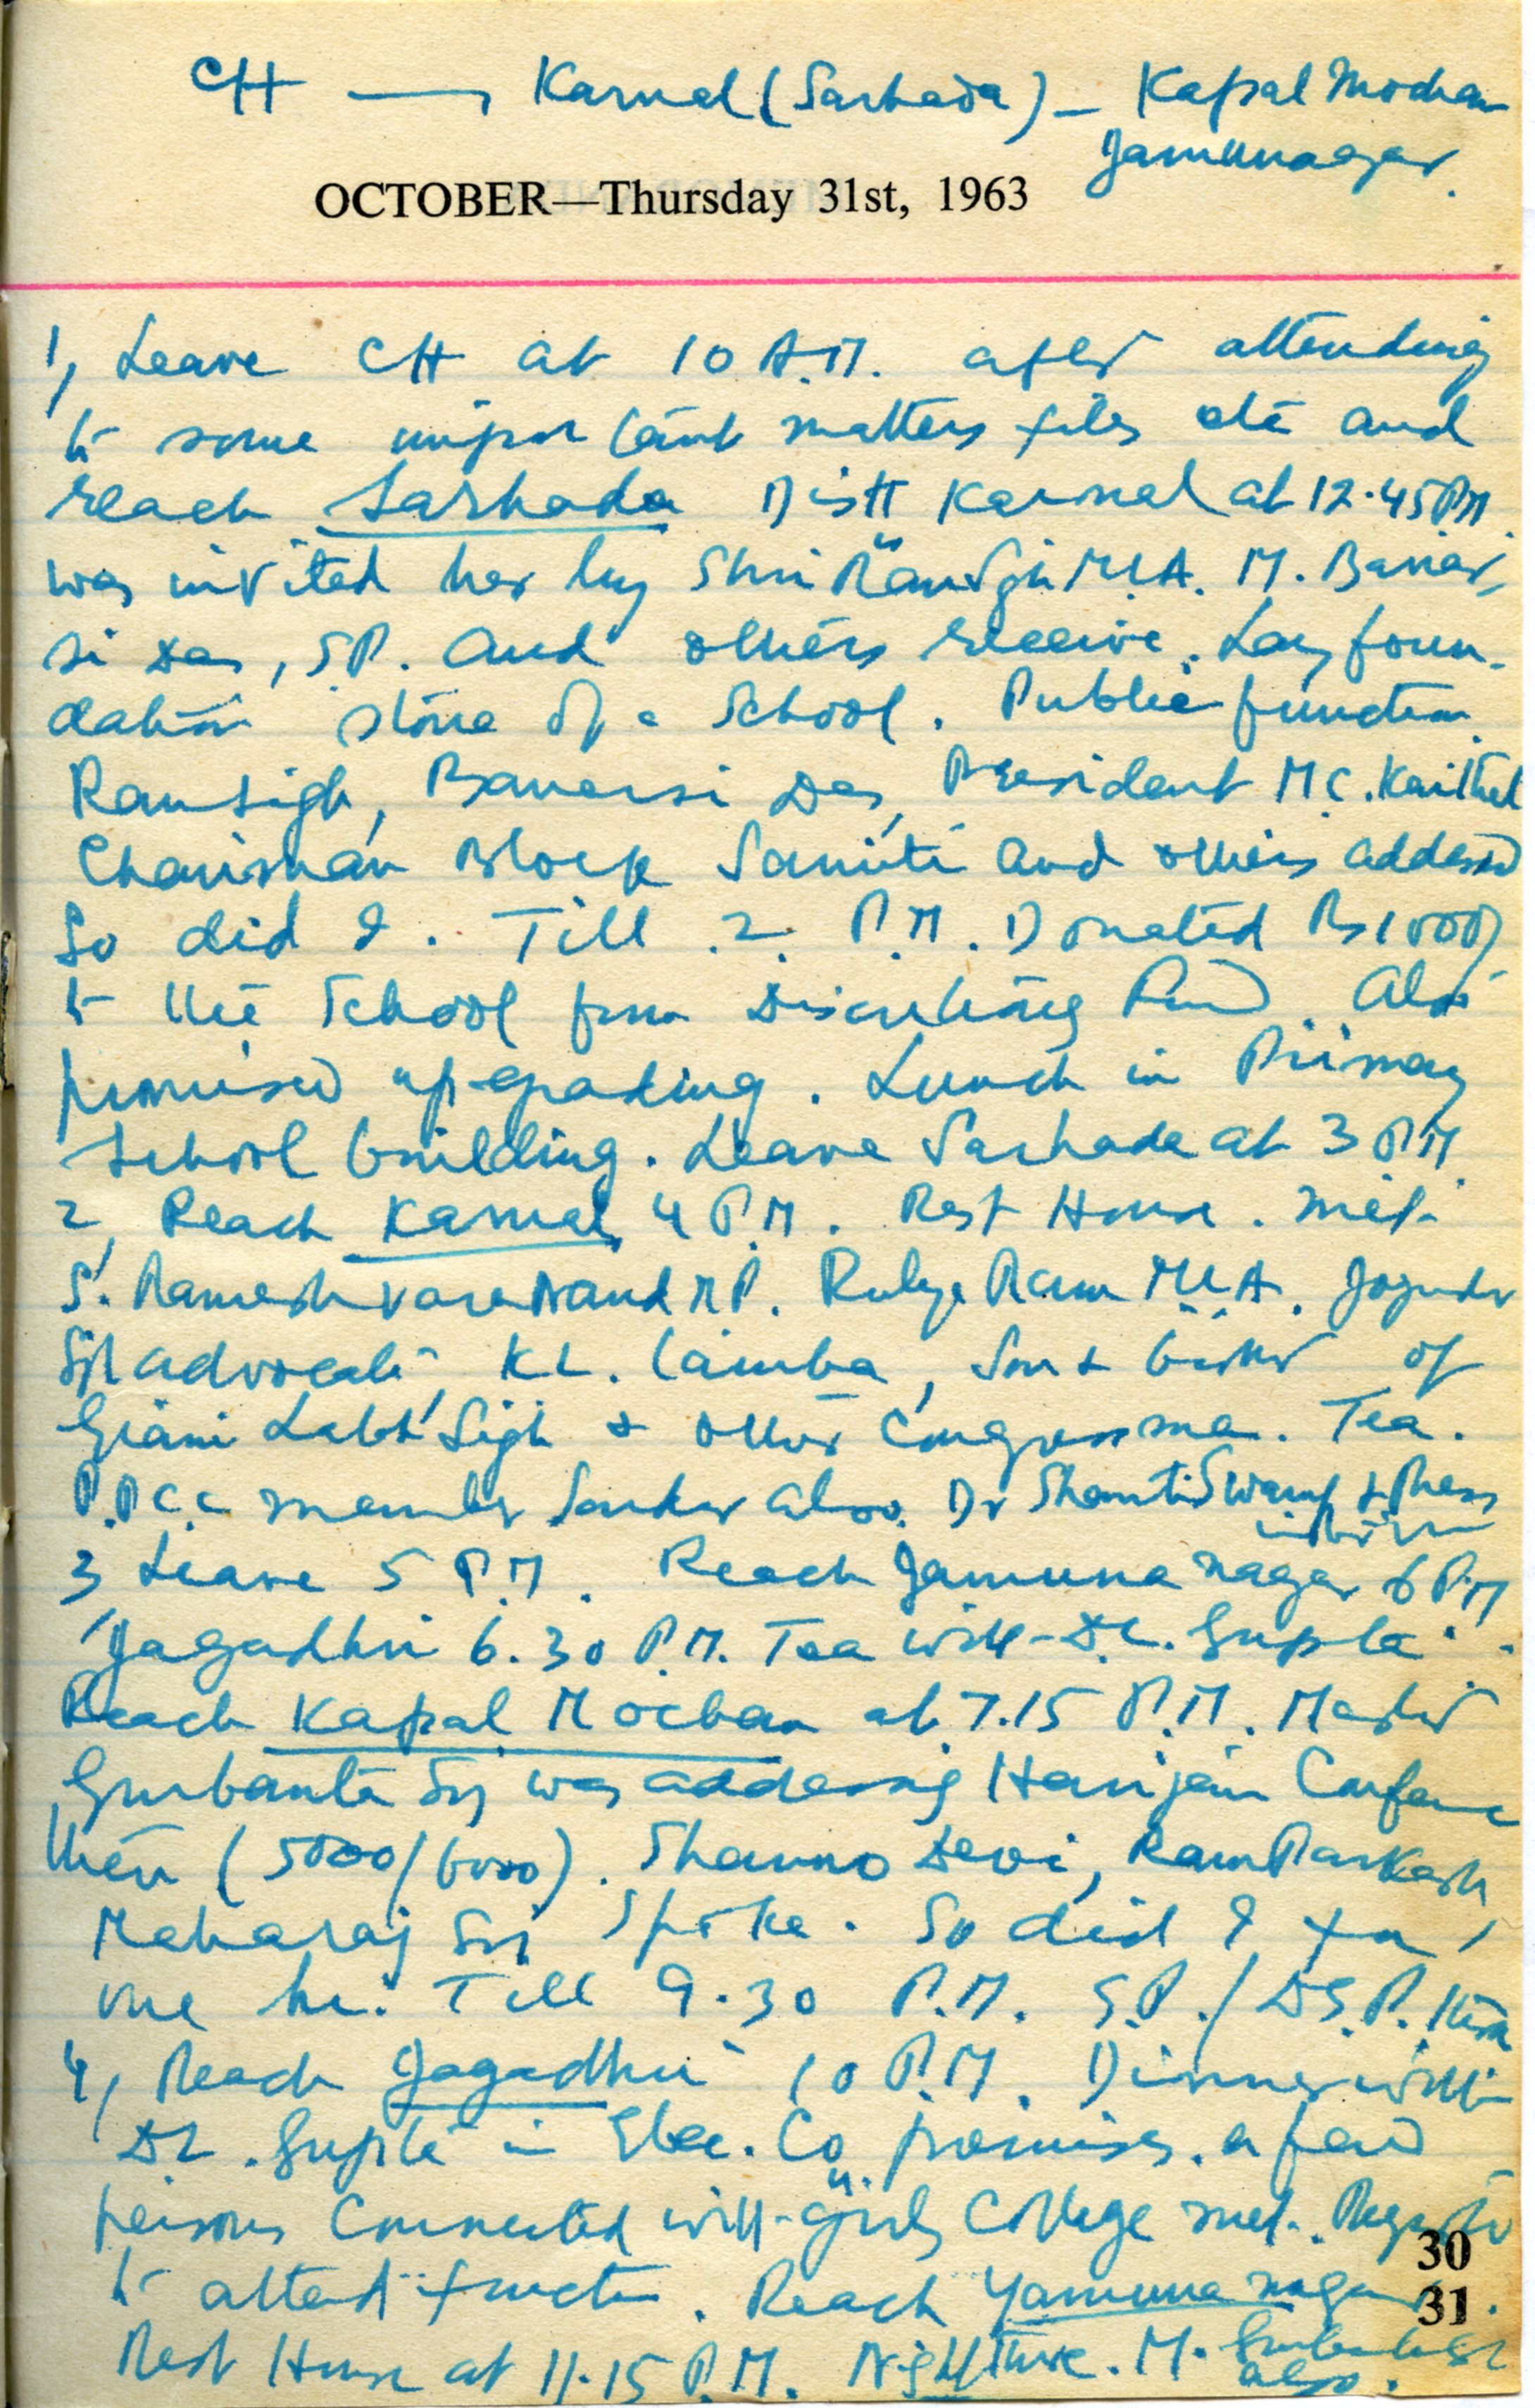 CH — Karnal (Sarhada) — Kapal Mochan
Jamunanagar.
OCTOBER—Thursday 31st, 1963
1, Leave CH at 10 A.M. after attending
to some important matters files etc and
reach Sarhada Distt Karnal at 12.45 PM.
was invited her by Shri Ram Sgh MLA. M. Banar-
si Das, S.P. and others receive. Lay foun-
dation stone of a School. Public function.
Ram Sigh, Banarsi Das, President M.C. Kaithal
Chairman Block Samiti and others addressed
So did I. Till 2 P.M. Donated Rs 1000/
to the School from Discretionary Fund. Also
promised up-grading. Lunch in Primary
School building. Leave Sarhada at 3 P.M.
2, Reach Karnal 4 P.M. Rest House. Met
S. Rameshvara Nand M.P. Rulya Ram MLA. Joginder
Sgh advocate K.L. Lamba, Son & brother of
Giani Labh Sigh & other Congressmen. Tea.
P.P.C.C member also. Dr Shanti Swarup & Press
interview
3, Leave 5 P.M. Reach Jamuna nagar 6 P.M
Jagadhri 6.30 P.M. Tea with D.L. Gupta.
Reach Kapal Mochan at 7.15 P.M. Master
Gurbanta Sgh was addressing Harijan Conference
then (5000/6000). Shanno Devi, Ram Parkash,
Maharaj Sgh Spoke. So did I for
one hr. Till 9.30 P.M. S.P./D.S.P. there
4, Reach Jagadhri 10 P.M. Dinner with
D.L. Gupta in Elec. Co. premises. a few
persons Connected with girls College met. Request
to attend function. Reach Yamuna nagar.
Rest House at 11.15 P.M. Night There. M. Gurbanta Sgh
also.
30
31